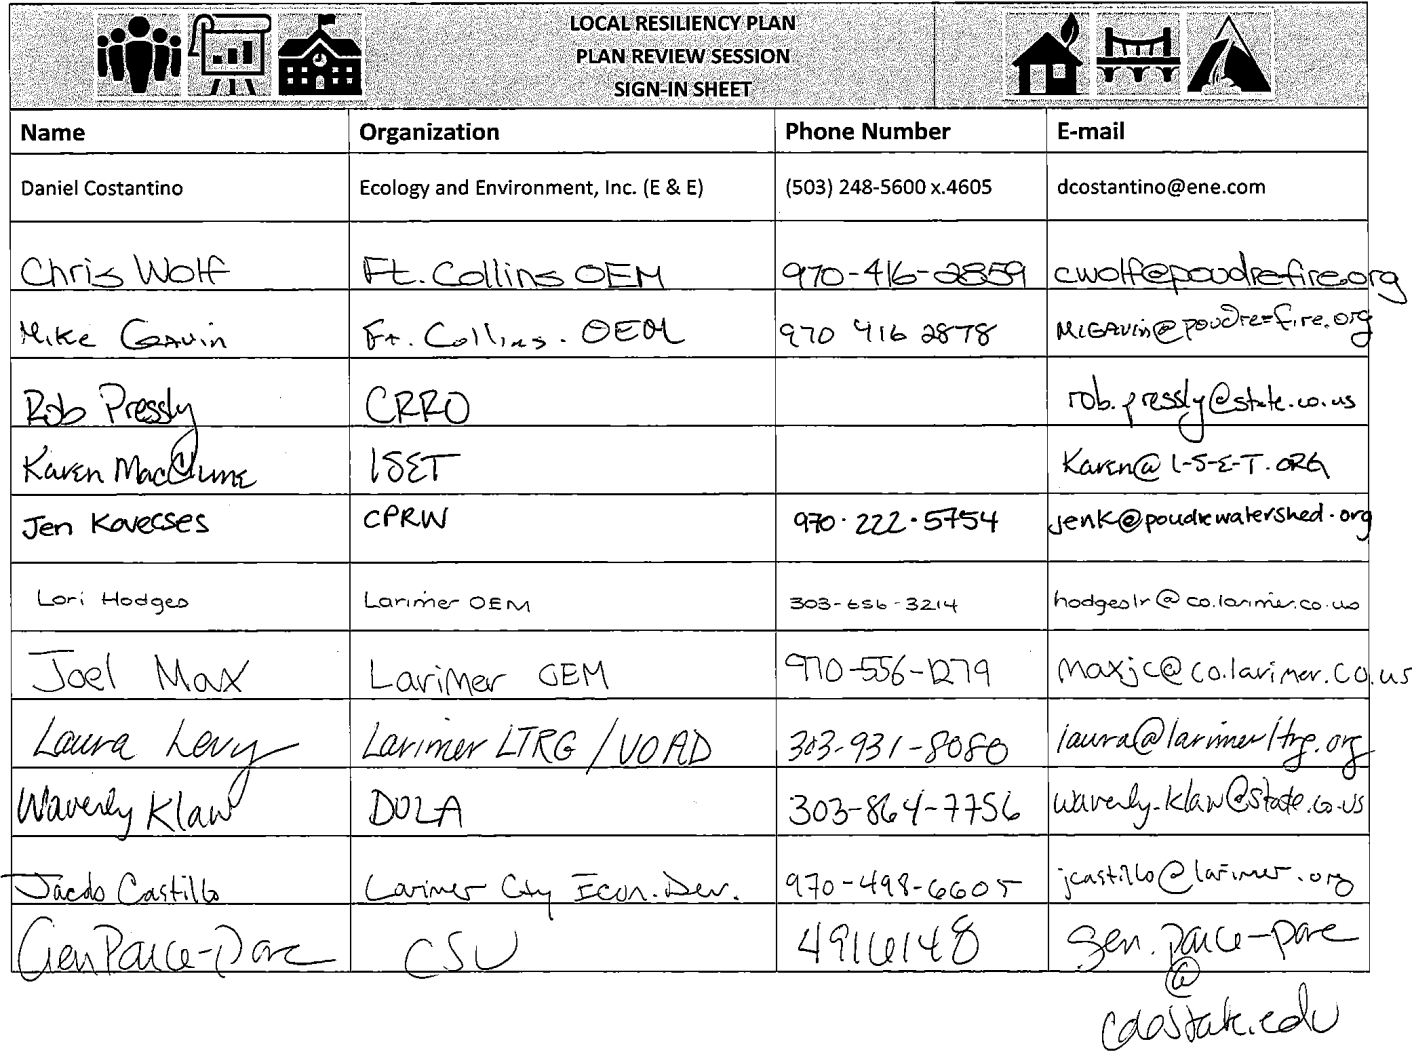 LOCAL RESILIENCY PLAN
PLAN REVIEW SESSION
SIGN-IN SHEET
Name Organization Phone Number E-mail
Daniel Costantino Ecology and Environment, Inc. (E & E) (503) 248-5600 x.4605 dcostantino@ene.com
Chris Wolf Ft. Collins OEM 970-416-2859 cwolf@poudrefire.org
Mike Gavin Ft. Collins. OEM 970 416 2878 MIGAVIN@poudre-fire.org
Rob Pressly CRRO rob.pressly@state.co.us
Karen MacClune ISET Karen@I-S-E-T.ORG
Jen Kovecses CPRW 970.222.5754 jenk@poudrewatershed.org
Lori Hodges Larimer OEM 303-656-3214 hodgeslr@co.larimer.co.us
Joel Max Larimer OEM 970-556-1279 maxjc@co.larimer.co.us
Laura Levy Larimer LTRG/VOAD 303-931-8080 laura@larimerltrg.org
Waverly Klaw DOLA 303-864-7756 waverly.klaw@state.co.us
Jacob Castillo Larimer Cty Econ. Dev. 970-498-6605 jcastillo@larimer.org
CSU 4916148
@